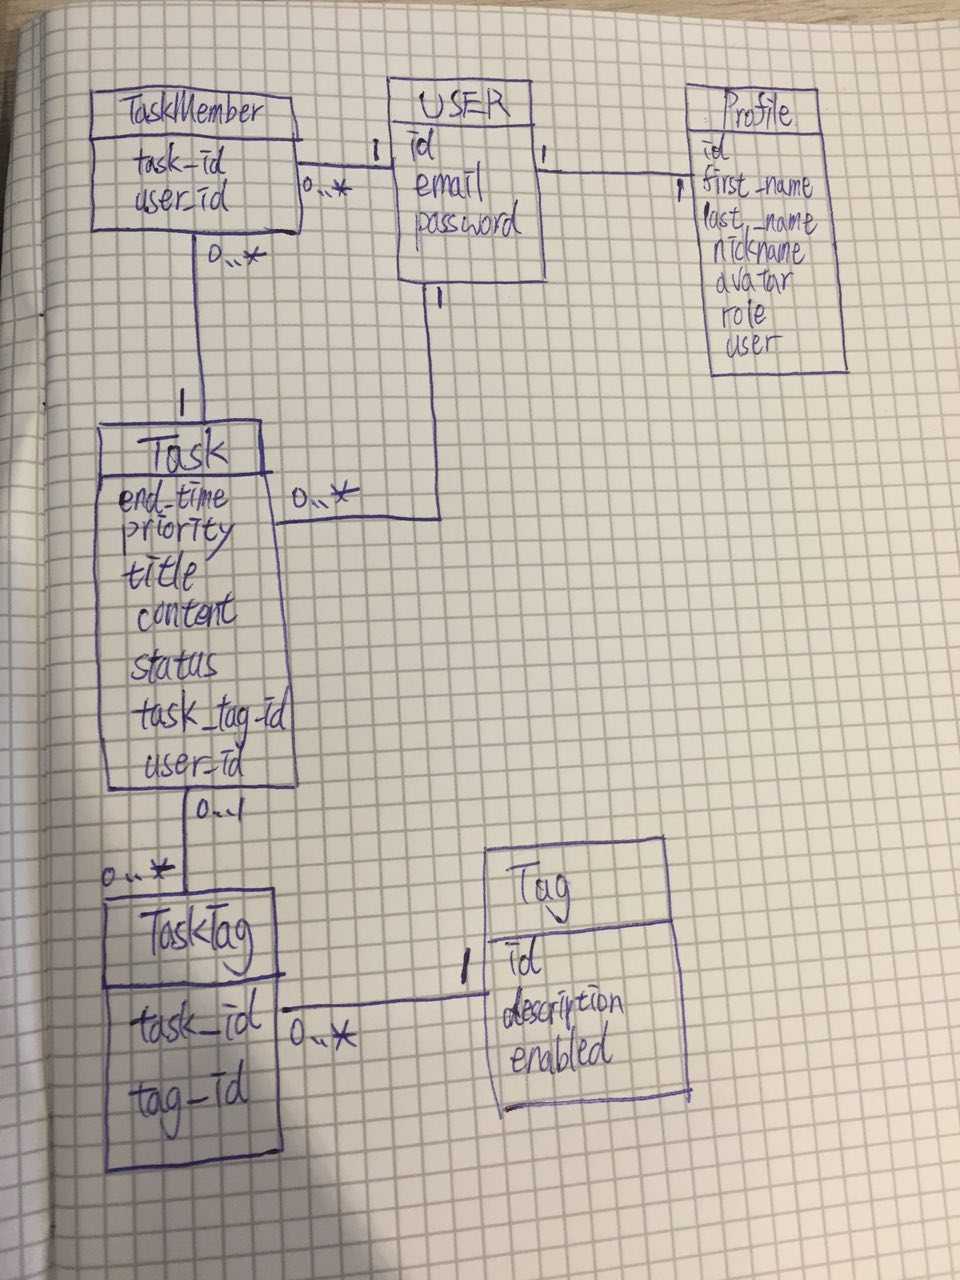 TaskMember
task_id
user_id
0..*
1
USER
id
email
password
1
1
Profile
id
first_name
last_name
nickname
avatar
role
user
0..*
1
1
Task
end_time
priority
title
content
status
task_tag_id
user_id
0..*
0..1
0..*
TaskTag
task_id
tag_id
0..*
1
Tag
id
description
enabled